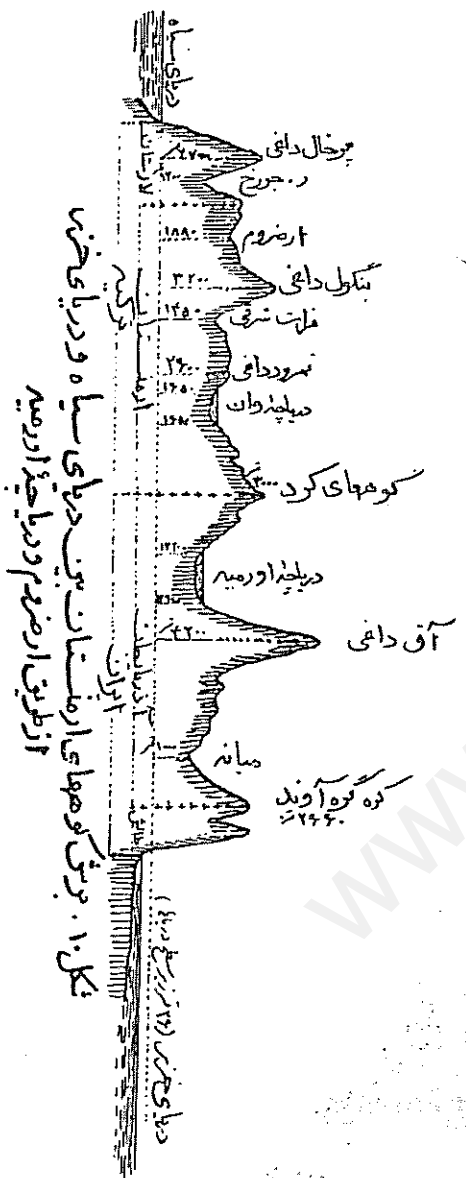 دریای سیاه
چرخال داغی
د. چورخ
ارضروم
۱۸۸۰
بنگول داغی
۳۲۰۰
فرات شرقی
۱۴۵۰
نمرود داغی
۲۹۰۰
۱۶۵۰
دریاچهٔ وان
۱۶۵۰
کوههای کرد
۳۰۰۰
دریاچهٔ اورمیه
آق داغی
میانه
کره گره آوند
لازستان
ترکیه
ایران
دریای خزر (۲۶ متر زیر سطح دریا)
شکل ۱۰. برش کوههای ارمنستان بین دریای سیاه و دریای خزر
از طریق ارضروم و دریاچهٔ اورمیه
www